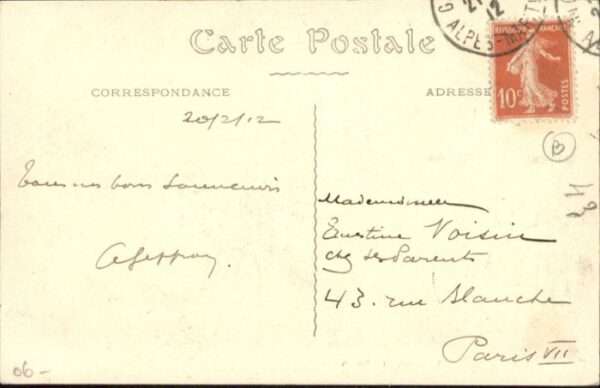 Carte Postale
CORRESPONDANCE
ADRESSE
G 21
12
ALPES-M
RÉPUBLIQUE FRANÇAISE
10c
POSTES
B
20/2/12
Tous nos bons souvenirs
Mademoiselle
Ernestine Voisin
chez ses Parents
43. rue Blanche
Paris VII
43
06-